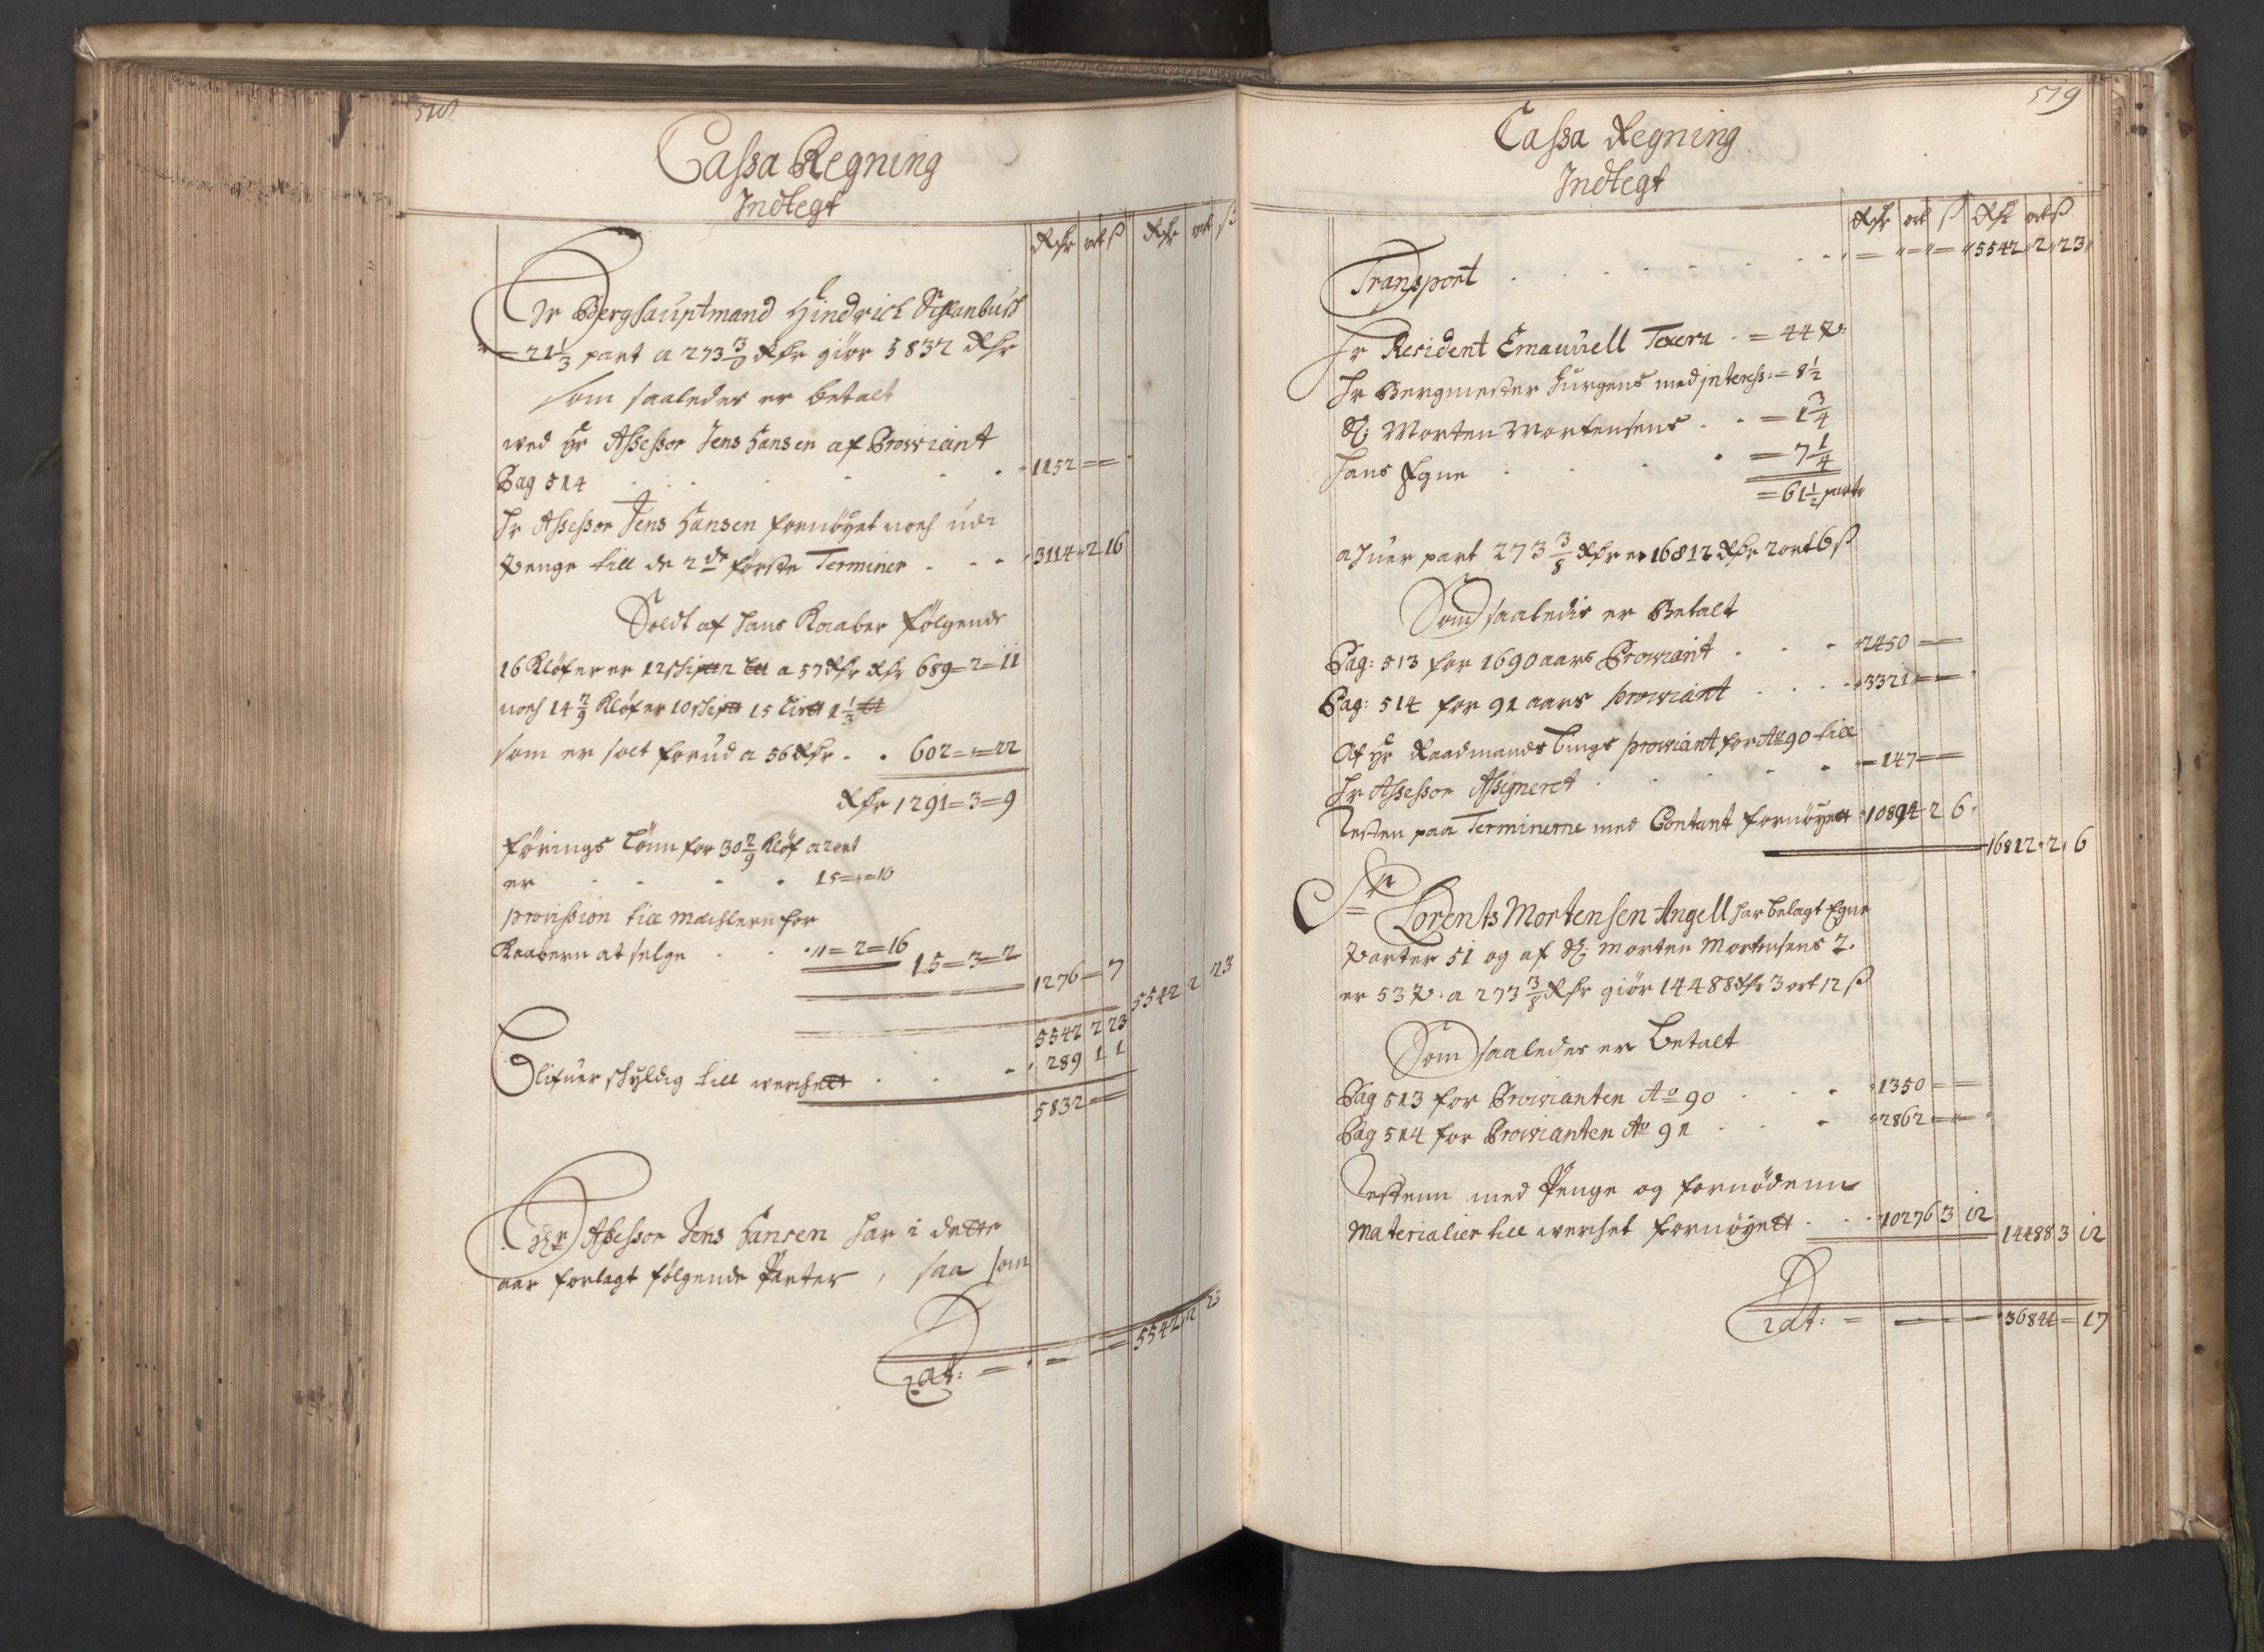 518
Cassa Regning
Indtegt
Rdr ort ß Rdr ort ß
Hr Berghauptmand Hindrich Schlanbusch
= 21 1/3 part a 273 3/8 Rdr giör 5832 Rdr
som saaledes er betalt
wed Hr Assessor Jens Hansen af Prowiant
Pag 514 . . . . . 1152 = =
Hr Assessor Jens Hansen fornöyet noch udi
Penge till de 2de förste Terminer . . . 3114 = 2 16
Soldt af hans Kaaber fölgende
16 Klöf er 12 a 57 Rdr Rdr 689 = 2 = 11
noch 14 2/9 Klöf er 10 15 1 1/3
som er solt forud a 56 Rdr . . 602 = = 22
Rdr 1291 = 3 = 9
förings Lönn for 30 2/9 Klöf a 2 ort
er . . . . 15 = = 10
provission till Mæchlern for
Kaabern at selge . . . " = 2 = 16 15 = 3 = 2
1276 = 7 5542 2 23
5542 2 23
Blifuer schyldig till werchett . . . 289 1 1
5832 = =
Hr Assessor Jens Hansen har i dette
aar forlagt fölgende Parter, saa som
Lat: = = = 5542 2 23
519
Cassa Regning
Indtegt
Rdr ort ß Rdr ort ß
Transport . . . . . = = = 5542 2 23
Hr Resident Emanuell Texera . = 44 p:
Hr Bergmester Jurgens med interess: = 8 1/2
Sl: Morten Mortensens . . = 1 3/4
Hans Egne . . . = 7 1/4
= 61 1/2 parter
a huer part 273 3/8 Rdr er 16812 Rdr 2 ort 6 ß
Som saaledis er Betalt
Pag: 513 for 1690 aars Prowiant . . . 2450 = =
Pag: 514 for 91 aars prowiant . . . . 3321 = =
Af Hr Raadmands Bings prowiant for Ao 90 till
Hr Assessor Assigneret . . . . . 147 = =
Resten paa Terminerne med Contant fornöyett 10894 2 6
16812 2 6
Sr
Lorents Mortensen Angell har belagt Egne
Parter 51 og af Sl: Morten Mortensens 2.
er 53 p: a 273 3/8 Rdr giör 14488 Rdr 3 ort 12 ß
Som saaledes er Betalt
Pag 513 for Prowianten Ao 90 . . . 1350 = =
Pag 514 for Prowianten Ao 91 . . . 2862 = =
Restenn med Penge og fornödenn
Materialier till werchet fornöyett . . . 10276 3 12 14488 3 12
Lat: = = = 36844 = 17